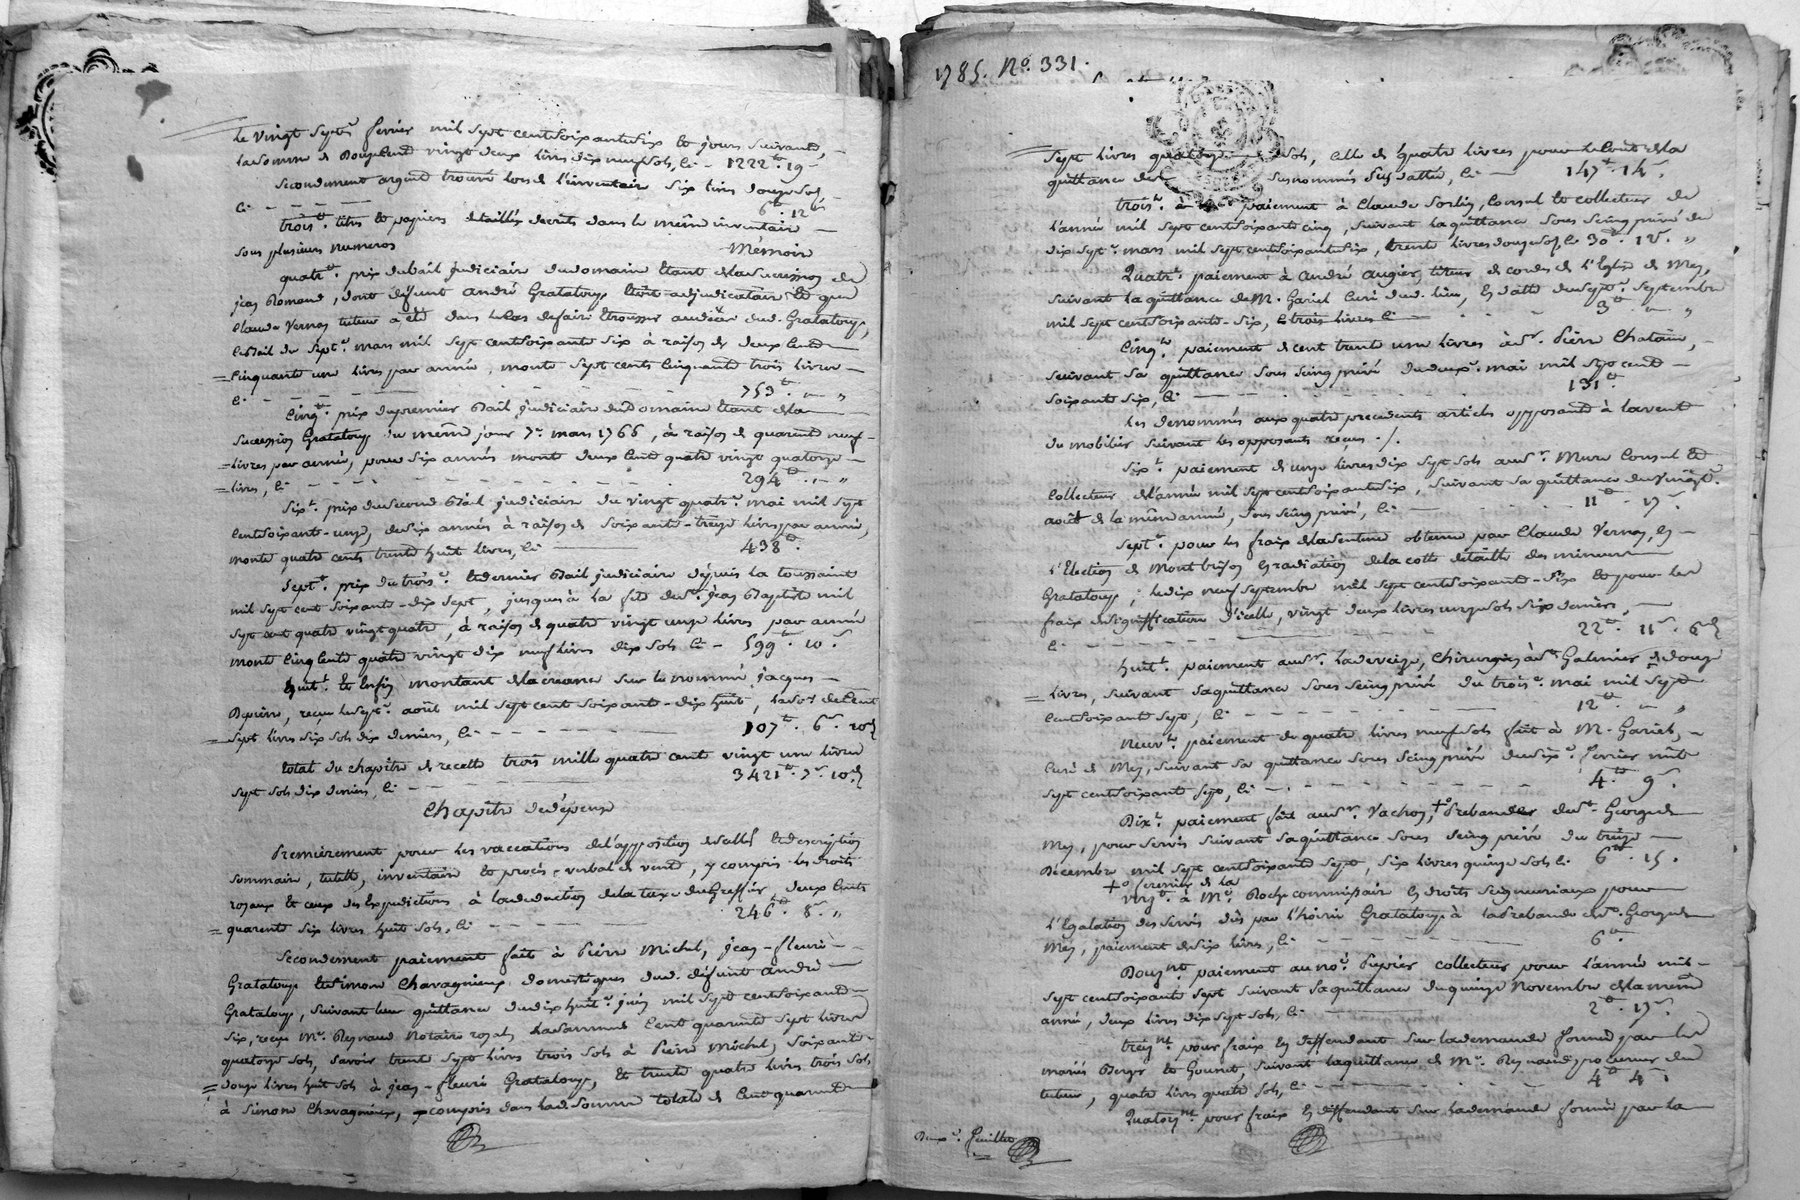 le vingt sept.e fevrier mil sept cent soixante six et jours suivants,
la somme de Douze cent vingt deux livres dix neuf sols, ci - 1222.tt 19
secondement argent trouvé lors de l'inventaire six livres douze sols
ci - - - - - 6.tt 12.s
trois.t titres et papiers détaillés décrits dans le même inventaire
sous plusieurs numeros Mémoire
quatr.t prix du bail judiciaire du domaine étant de la succession de
jean Romand, dont défunt andré Grataloup étoit adjudicataire et que
Claude Vernay tuteur a été dans le cas de faire trousser audit dud. Grataloup,
le bail du sept.e mars mil sept cent soixante six à raison de deux cents
cinquante une livres par année, monte sept cents cinquante trois livres
ci - - - - 753.tt " "
cinq.t prix du premier Bail judiciaire du Domaine étant de la
succession Grataloup du même jour 7.e mars 1766, à raison de quarente neuf
livres par année, pour six années monte deux cent quatre vingt quatorze
livres, ci - - - - 294.tt " "
six.t prix du second Bail judiciaire du vingt quatr.e mai mil sept
cent soixante-onze, de six années à raison de soixante-treize livres par année,
monte quatre cents trente huit livres, ci 438.tt
sept.t prix du trois.e et dernier Bail judiciaire depuis la toussaint
mil sept cent soixante-dix sept, jusques à la fête de s.t jean Baptiste mil
sept cent quatre vingt quatre, à raison de quatre vingt onze livres par année
monte cinq cents quatre vingt dix neuf livres dix sols ci - 599.tt 10.s
huit.t et enfin montant de la créance sur le nommé jacques
reçue le sept.e août mil sept cent soixante-dix huit, la so.e de cent
sept livres six sols dix deniers, ci - - - - 107.tt 6.s 10d
total du chapitre de recette trois mille quatre cent vingt une livres
sept sols dix deniers, ci - - - 3421.tt 7.s 10d
Chapitre de dépense
Premièrement pour les vaccations de l'apposition de scellés et description
sommaire, tutelle, inventaire et procès-verbal de vente, y compris les droits
royaux et ceux des Expéditions à la déduction de la taxe du Greffier, deux cents
quarente six livres huit sols, ci - - - - 246.tt 8.s "
secondement paiement fait à Pierre Michel, jean-fleuri
Grataloup et Simone Chavagnieux domestiques dud. défunt andré
Grataloup, suivant leur quittance du dix huit.e juin mil sept cent soixante
six, reçue M.e Reynaud Notaire royal la somme cent quarente sept livres
quatorze sols, savoir trente sept livres trois sols à Pierre Michel, soixante
douze livres huit sols à jean-fleuri Grataloup, et trente quatre livres trois sols
à Simone Chavagnieux, y compris dans lad. somme totale de cent quarente
1785. N.o 331.
sept livres quatorze sols, celle de quatre livres pour le coût de la
quittance des susnommés susdattée, ci - 147.tt 14.s
trois.t à paiement à Claude Sorlin, consul et collecteur de
l'année mil sept cent soixante cinq, suivant la quittance sous seing privé du
dix sept.e mars mil sept cent soixante six, trente livres douze sols, ci 30.tt 12.s "
Quatr.t paiement à andré augier, tireur de cordes de l'Eglise de Mey,
suivant la quittance de M. Gariel curé dud. lieu, en datte du sept.e septembre
mil sept cent soixante-six, trois livres ci - 3.tt " "
Cinq.t paiement de cent trente une livres à s.r Pierre Chatain,
suivant sa quittance sous seing privé du deux.e mai mil sept cent
soixante six, ci - - - 131.tt
les denommés aux quatre precedents articles opposants à la vente
du mobilier suivant les oppositions reçues ./.
six.t paiement de onze livres dix sept sols aud. s.r Mure consul et
collecteur de l'année mil sept cent soixante six, suivant sa quittance du vingt
août de la même année, sous seing privé, ci - 11.tt 17.s
sept.t pour les frais de la sentence obtenue par Claude Vernay, en
l'Election de Montbrison en radiation de la cotte détaille des mineurs
Grataloup; le dix neuf septembre mil sept cent soixante-six et pour les
frais de signiffication d'icelle, vingt deux livres onze sols six deniers,
ci - - - - 22.tt 11.s 6d
huit.t paiement au s.r Ladevèze, chirurgien à S.t Galmier de douze
livres, suivant sa quittance sous seing privé du trois.e mai mil sept
cent soixante sept, ci - - - 12.tt " "
neuv.t paiement de quatre livres neuf sols fait à M. Gariel,
curé de Mey, suivant sa quittance sous seing privé du six.e fevrier mil
sept cent soixante sept, ci - - - 4.tt 9.s
Dix.t paiement fait au s.r Vachon, + Prebandier de S.t George
Mey, pour servis suivant sa quittance sous seing privé du treize
Décembre mil sept cent soixante sept, six livres quinze sols ci 6.tt 15.
+ fermier de la
onz.t à M.e Roche commissaire en droits seigneuriaux pour
l'Egalation des servis dûs par l'hoirie Grataloup à la Prebande de S.t George
Mey, paiement de six livres, ci - - - 6.tt
Douz.nt paiement au no.é Dupin collecteur pour l'année mil
sept cent soixante sept suivant sa quittance du quinze Novembre de la même
année, deux livres dix sept sols, ci - 2.tt 17.s
treiz.nt pour frais en deffendant sur la demande formée par les
mariés et Gounet, suivant la quittance de M.e Reynaud, procureur du
tuteur, quatre livres quatre sols, ci - - 4.tt 4.s
Quatorz.nt pour frais en deffendant sur la demande formée par la
Deux.e feuillet